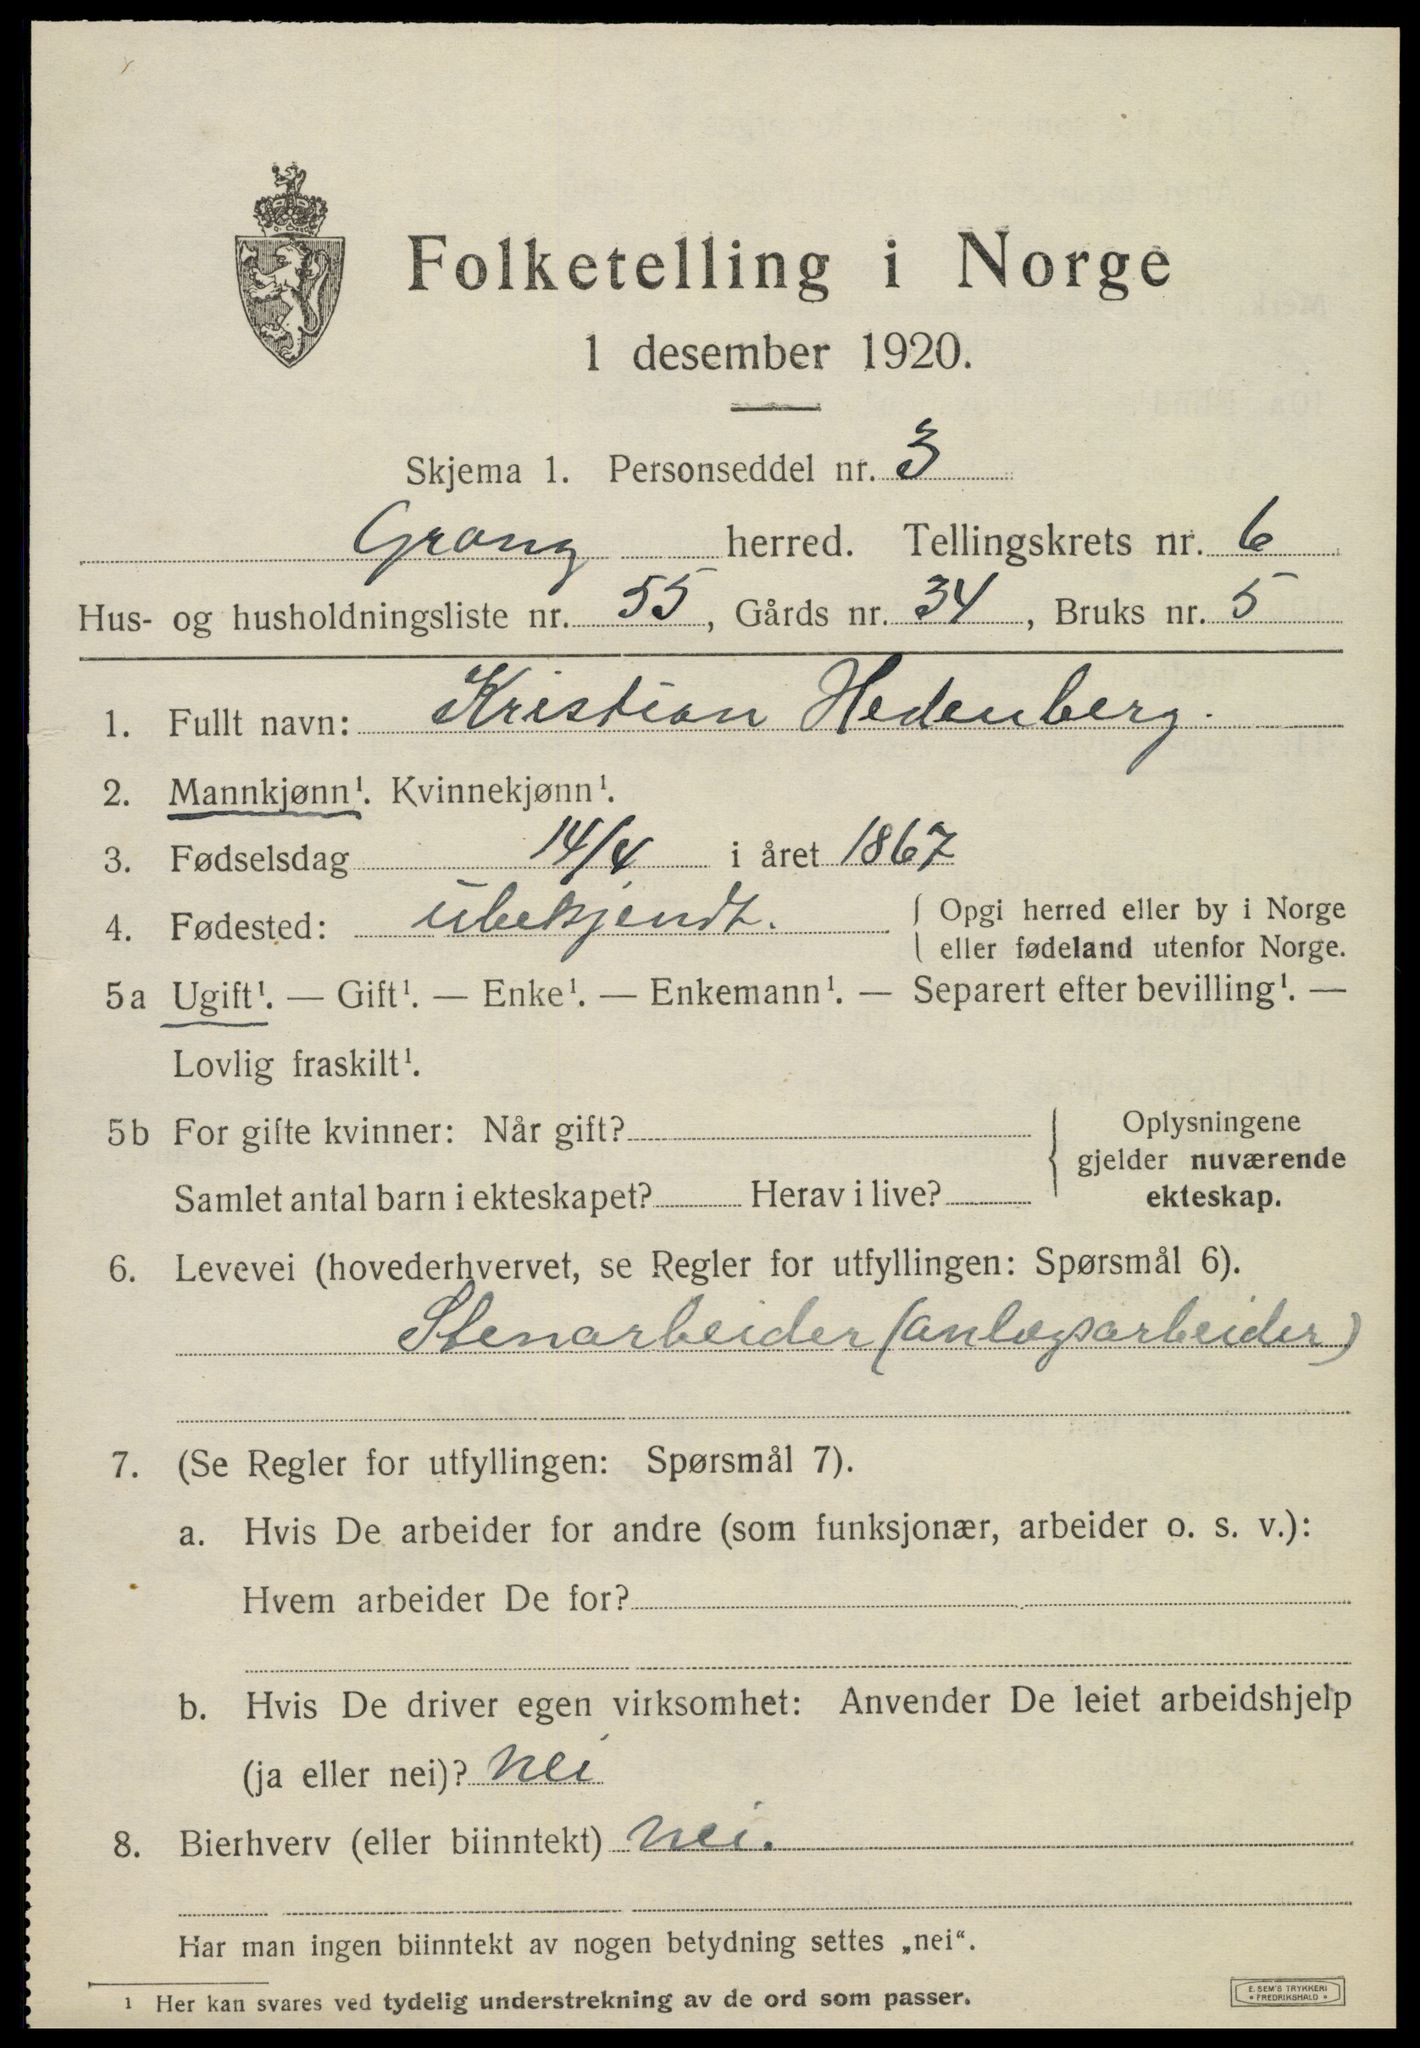 Folketelling i Norge
1 desember 1920.
Skjema 1. Personseddel nr. 3
Grong herred. Tellingskrets nr. 6
Hus- og husholdningsliste nr. 55, Gårds nr. 34, Bruks nr. 5
1. Fullt navn: Kristian Hedenberg.
2. Mannkjønn¹. Kvinnekjønn¹.
3. Fødselsdag 14/4 i året 1867
4. Fødested: ubekjendt. { Opgi herred eller by i Norge
eller fødeland utenfor Norge.
5a Ugift¹. — Gift¹. — Enke¹. — Enkemann¹. — Separert efter bevilling¹. —
Lovlig fraskilt¹.
5b For gifte kvinner: Når gift? { Oplysningene
gjelder nuværende
Samlet antal barn i ekteskapet? Herav i live? ekteskap.
6. Levevei (hovederhvervet, se Regler for utfyllingen: Spørsmål 6).
Stenarbeider (anlægsarbeider)
7. (Se Regler for utfyllingen: Spørsmål 7).
a. Hvis De arbeider for andre (som funksjonær, arbeider o. s. v.):
Hvem arbeider De for?
b. Hvis De driver egen virksomhet: Anvender De leiet arbeidshjelp
(ja eller nei)? nei
8. Bierhverv (eller biinntekt) nei.
Har man ingen biinntekt av nogen betydning settes „nei“.
¹ Her kan svares ved tydelig understrekning av de ord som passer.
E. SEM'S TRYKKERI
• FREDRIKSHALD •